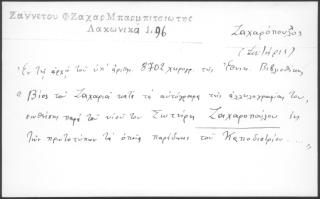 Ζαννέτου Φ Ζαχαρ Μπαρμπιτσιώτης
Λακωνικά 1.96
Ζαχαρόπουλος
(Σωτήριος)
Ἐν τῇ ἀρχῇ τοῦ ὑπ' ἀριθμ. 8702 χειρογρ. τῆς Ἐθνικ. Βιβλιοθήκης
ὁ Βίος τοῦ Ζαχαριᾶ κατὰ τὰ αὐτόγραφα τῆς ἀλληλογραφίας του,
παρὰ τοῦ υἱοῦ του Σωτήρη Ζαχαροπούλου ἐκ
τῶν πρωτοτύπων τὰ ὁποῖα παρέδωκε τοῦ Καποδιστρίου ....,